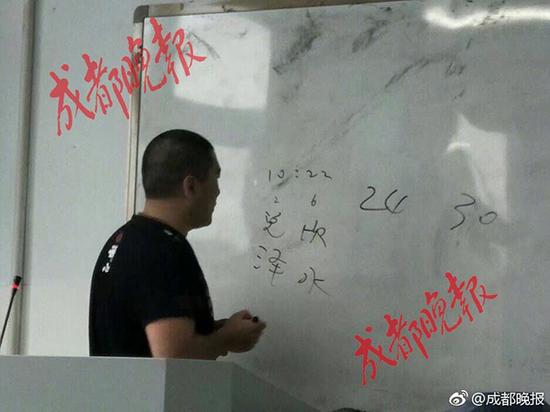 成都晚报
10:22
2 6
兑 坎
泽 水
24 30
成都晚报
@成都晚报